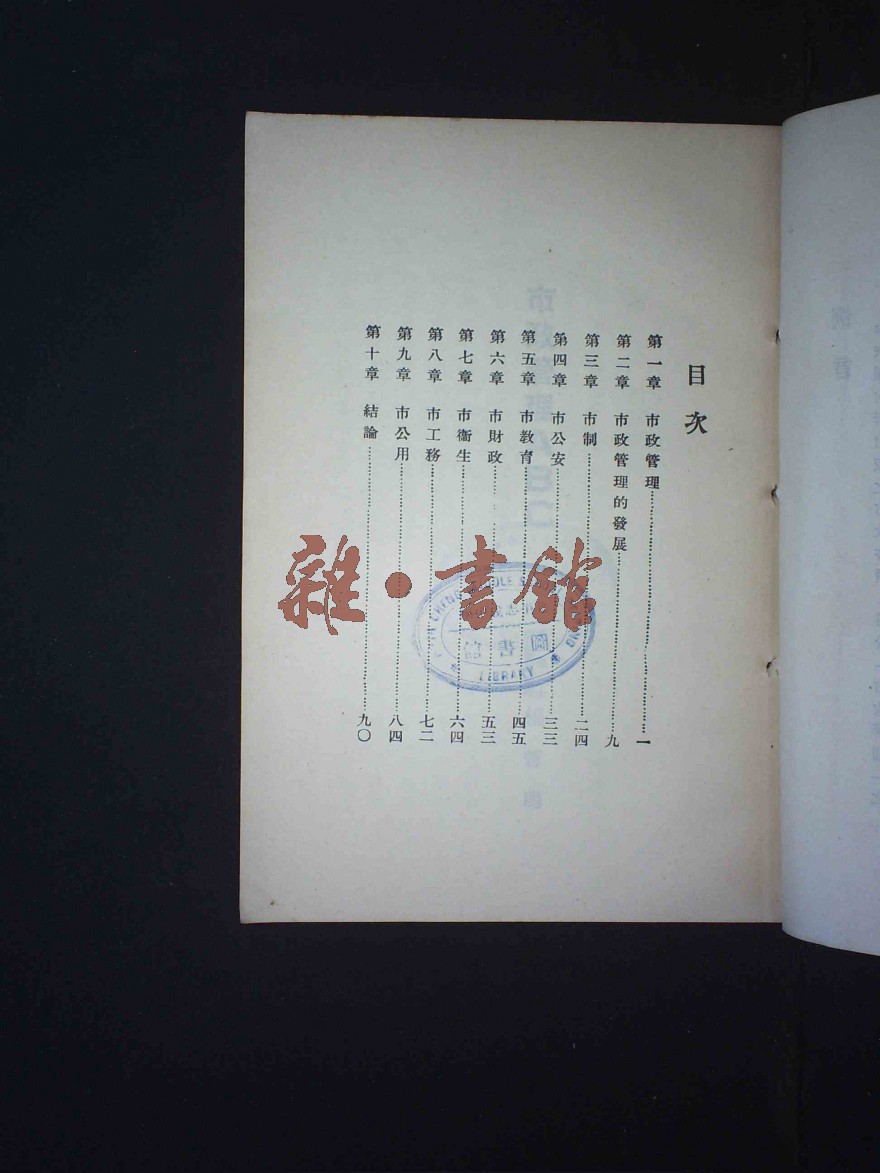 目次
第一章 市政管理……一
第二章 市政管理的發展……九
第三章 市制……二四
第四章 市公安……三三
第五章 市教育……四五
第六章 市財政……五三
第七章 市衞生……六四
第八章 市工務……七二
第九章 市公用……八四
第十章 結論……九〇
雜·書館
LIBRARY